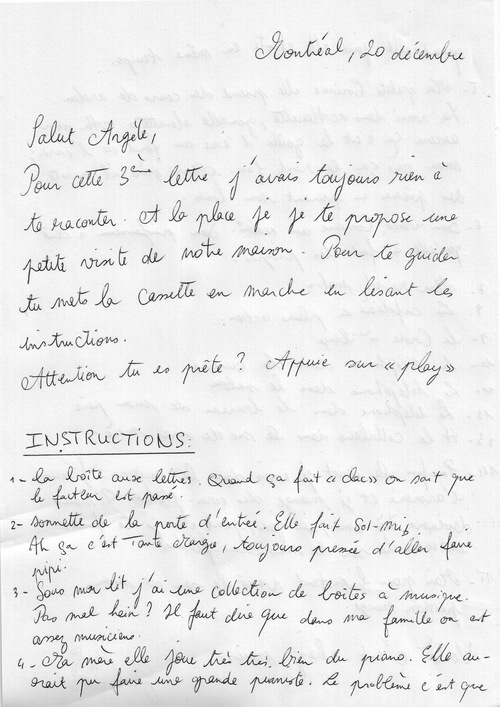 Montréal, 20 décembre
Salut Angèle,
Pour cette 3ème lettre j'avais toujours rien à
te raconter. A la place je je te propose une
petite visite de notre maison. Pour te guider
tu mets la cassette en marche en lisant les
instructions.
Attention tu es prête ? Appuie sur « play »
INSTRUCTIONS:
1- la boîte aux lettres. Quand ça fait « clac » on sait que
le facteur est passé.
2- sonnette de la porte d'entrée. Elle fait Sol-mi♭
Ah ça c'est Tante Margie, toujours pressée d'aller faire
pipi.
3- Sous mon lit j'ai une collection de boîtes à musique.
Pas mal hein ? Il faut dire que dans ma famille on est
assez musiciens.
4- Ma mère elle joue très très bien du piano. Elle au-
rait pu faire une grande pianiste. Le problème c'est que